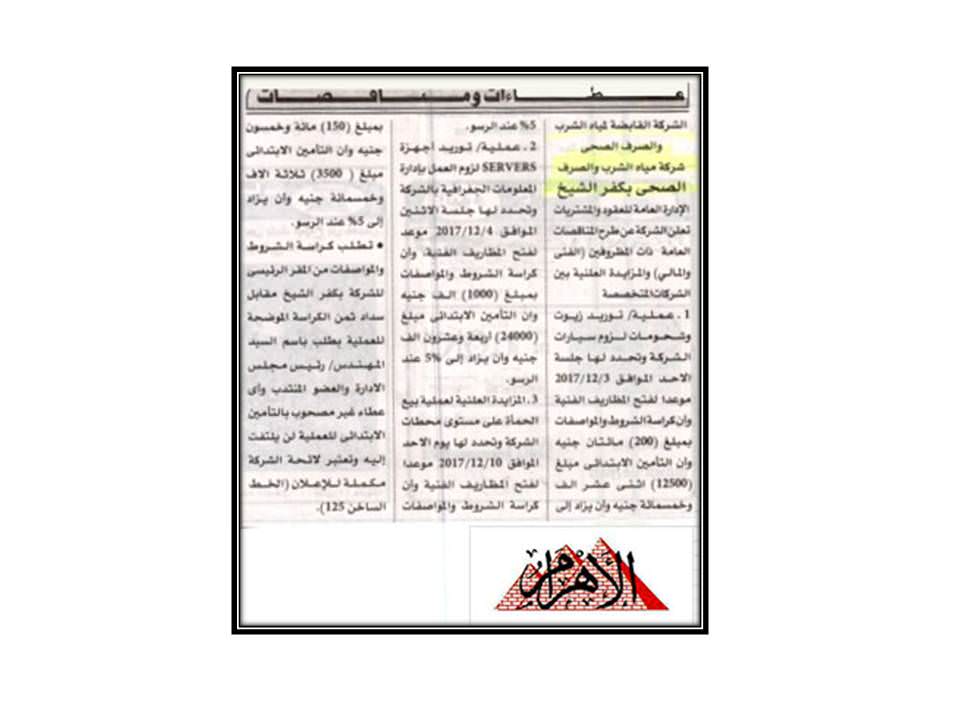 عطاءات ومناقصات
الشركة القابضة لمياه الشرب
والصرف الصحى
شركة مياه الشرب والصرف
الصحى بكفر الشيخ
الإدارة العامة للعقود والمشتريات
تعلن الشركة عن طرح المناقصات
العامة ذات المظروفين (الفنى
والمالي) والمزايدة العلنية بين
الشركات المتخصصة
1 . عملية/ توريد زيوت
وشحومات لزوم سيارات
الشركة وتحدد لها جلسة
الاحد الموافق 2017/12/3
موعدا لفتح المظاريف الفنية
وأن كراسة الشروط والمواصفات
بمبلغ (200) مائتان جنيه
وأن التأمين الابتدائى مبلغ
(12500) اثنى عشر الف
وخمسمائة جنيه وأن يزاد إلى
5% عند الرسو.
2 . عملية/ توريد أجهزة
SERVERS لزوم العمل بإدارة
المعلومات الجغرافية بالشركة
وتحدد لها جلسة الاثنين
الموافق 2017/12/4 موعدا
لفتح المظاريف الفنية، وأن
كراسة الشروط والمواصفات
بمبلغ (1000) الف جنيه
وان التأمين الابتدائى مبلغ
(24000) أربعة وعشرون الف
جنيه وأن يزاد إلى 5% عند
الرسو.
3 . المزايدة العلنية لعملية بيع
الحمأة على مستوى محطات
الشركة وتحدد لها يوم الاحد
الموافق 2017/12/10 موعدا
لفتح المظاريف الفنية وأن
كراسة الشروط والمواصفات
بمبلغ (150) مائة وخمسون
جنيه وأن التأمين الابتدائى
مبلغ ( 3500) ثلاثة الاف
وخمسمائة جنيه وأن يزاد
إلى 5% عند الرسو.
• تطلب كراسة الشروط
والمواصفات من المقر الرئيسى
للشركة بكفر الشيخ مقابل
سداد ثمن الكراسة الموضحة
للعملية بطلب باسم السيد
المهندس/ رئيس مجلس
الادارة والعضو المنتدب وأى
عطاء غير مصحوب بالتأمين
الابتدائى للعملية لن يلتفت
إليه وتعتبر لائحة الشركة
مكملة للإعلان (الخط
الساخن 125).
الأهرام